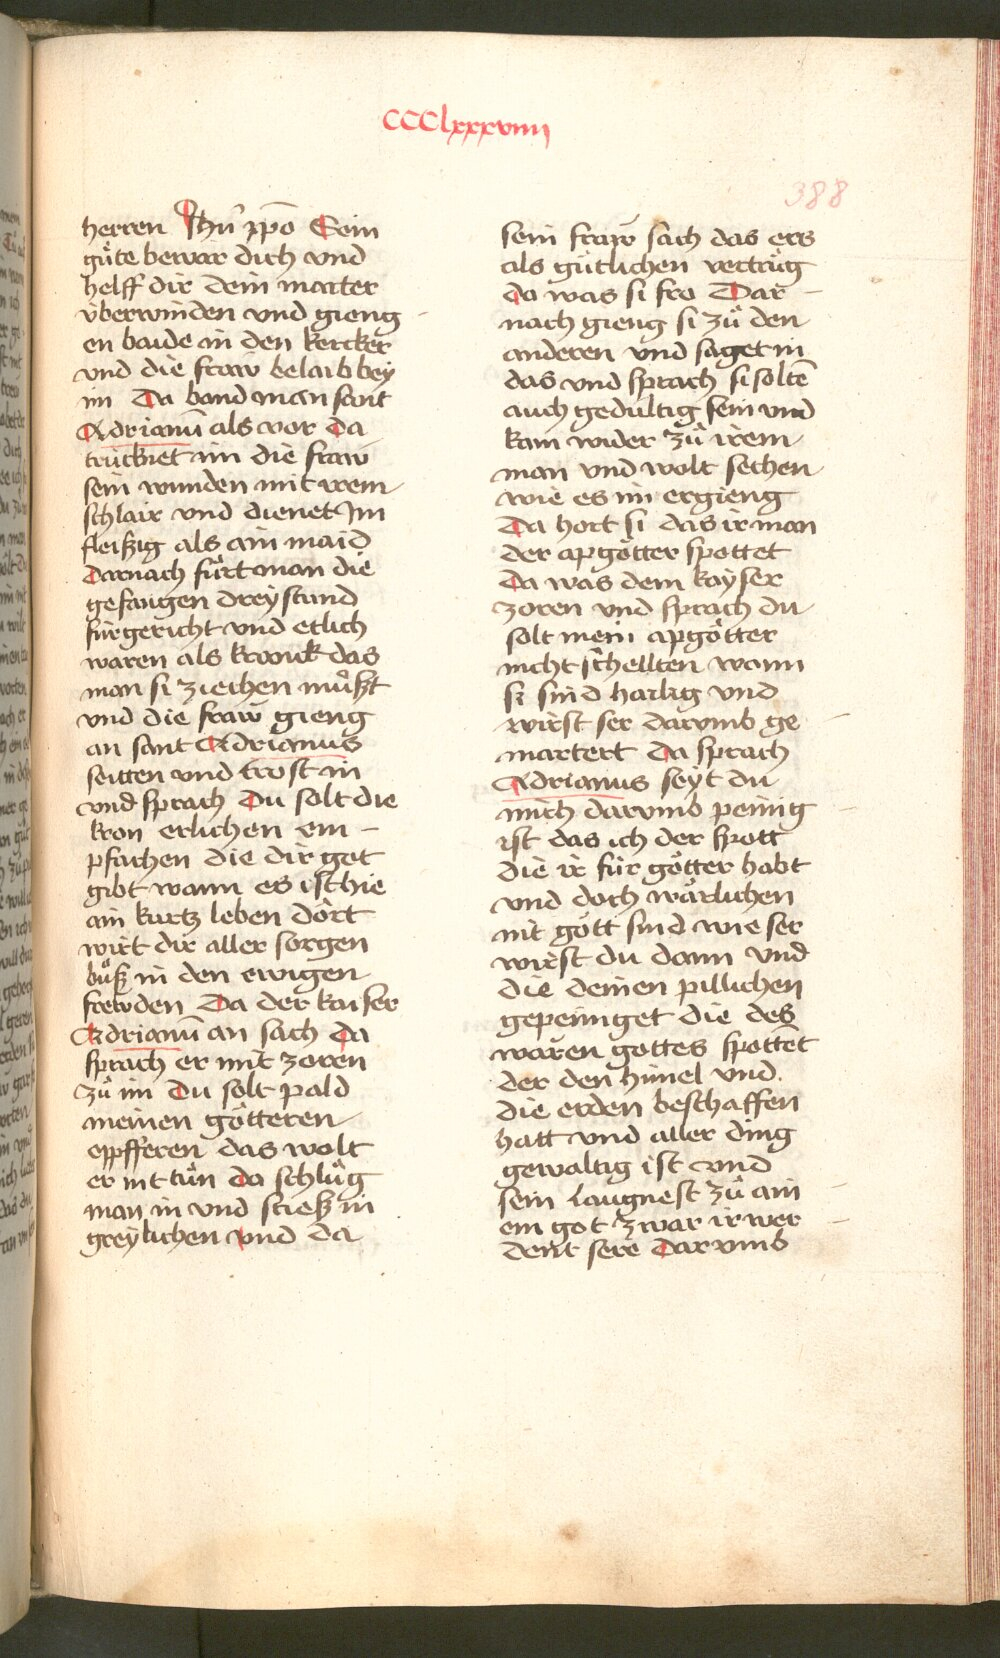 CCClxxxviiij
388
herren Jhū xp̄o Sein
gůte bewar dich vnd
helff dir dein marter
v̈berwinden vnd gieng
en baide in den kercker
vnd die fraw belaib bey
im Da band man sant
Adrianū als vor da
trucknet im die fraw
sein wunden mit irem
schlair vnd dienet Im
fleiszig als ain maid
Darnach fůrt man die
gefangen drey stund
für gericht vnd etlich
waren als kranck das
man si ziechen můszt
vnd die fraw gieng
an sant Adrianus
seitten vnd trost in
vnd sprach Du solt die
kron erlichen em –
pfachen die dir got
gibt wann es ist hie
ain kurtz leben dört
wirt dir aller sorgen
bůsz in den ewigen
frewden Da der kaiser
Adrianū an sach da
sprach er mit zoren
zů im Du solt pald
meinen götteren
opfferen das wolt
er nit tůn da schlůg
man in vnd stiesz in
greylichen vnd da
sein fraw sach das ers
als gütlichen vertrůg
do was si fro Dar
nach gieng si zů den
anderen vnd saget in
das vnd sprach si soltē
auch gedultig sein vnd
kam wider zů irem
man vnd wolt sechen
wie es im ergieng
Da hort si das ir man
der apgötter spottet
Da was dem kayser
zoren vnd sprach du
solt mein apgötter
nicht schellten wann
si sind hailig vnd
wirst ser darumb ge
martert Da sprach
Adrianus seyt du
mich darumb peinig
ist das ich der spott
die ir für götter habt
vnd doch wärlichen
nit gött sind wie ser
wirst du dann vnd
die deinen pillichen
gepeiniget die des
waren gottes spottet
der den himel vnd
die erden beschaffen
hatt vnd aller ding
gewaltig ist vnd
sein laugnest zů ain
em got zwar ir wer
dent sere darumb